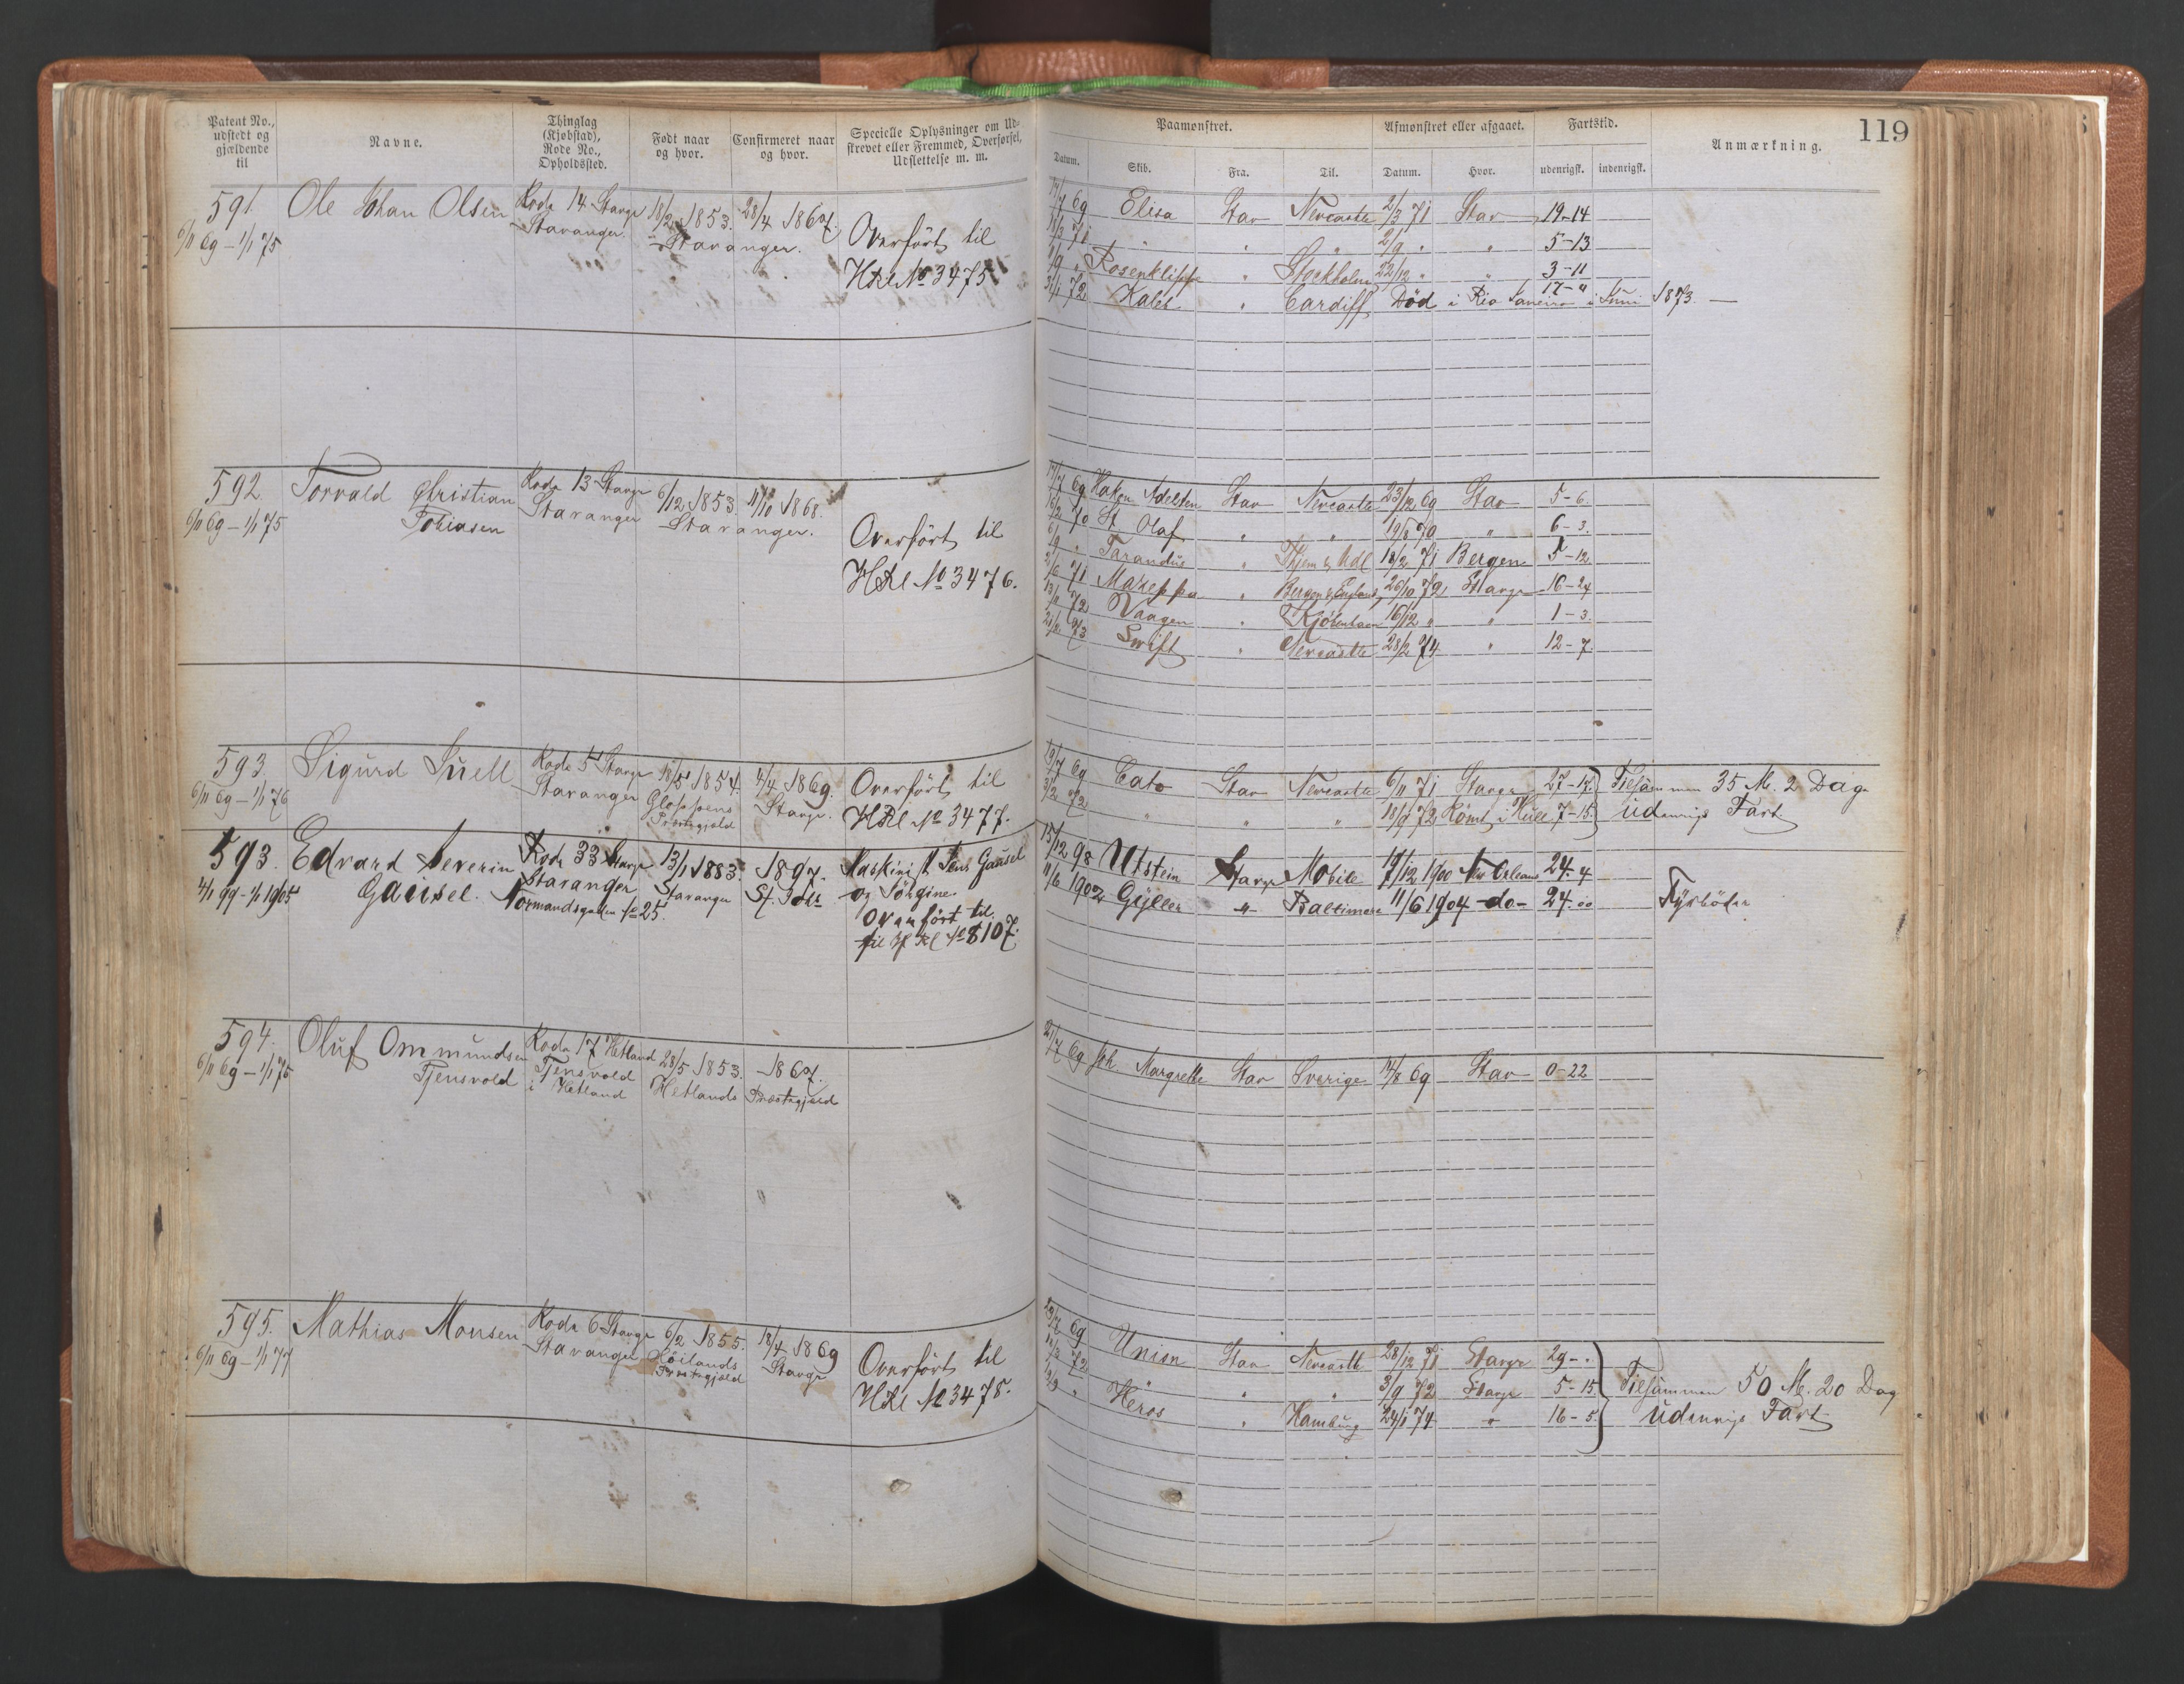 119
Patent No., udstedt og gjældende til
Navne.
Thinglag (Kjøbstad), Rode No., Opholdssted.
Født naar og hvor.
Confirmeret naar og hvor.
Specielle Oplysninger om Udskrevet eller Fremmed, Overførsel, Udslettelse m. m.
Paamønstret.
Afmønstret eller afgaaet.
Fartstid.
Anmærkning.
Datum.
Skib.
Fra.
Til.
Datum.
Hvor.
udenrigsk.
indenrigsk.
591. Ole Johan Olsen Rode 14 Stavgr 18/2 1853. 28/4 1867.
6/11 69 – 1/1 75 Stavanger. Stavanger.
Overført til
HRl No 3475
17/7 69 Elisa Stav Newcastle 2/3 71 Stav 19-14
71 " " " 2/9 " " 5-13
Rosenklipp " Stockholm 22/12 " " 3-11
31/1 72 Kaleb " Cardiff Død i Rio Janeiro i Juni 1873. 17-"
592 Torvald Christian Rode 13 Stavgr 6/12 1853. 11/10 1868.
6/11 69 – 1/1 75 Tobiasen Stavanger Stavanger.
Overført til
HRl No 3476.
17/7 69 Hakon Adelsten Stav Newcastle 23/12 69 Stav 5-6.
16/2 70 St Olaf " " 19/8 70 " 6-3.
Tarandus " 18/2 71 Bergen 5-12
71 Mazeppa " Bergen & England 26/10 72 Stavgr 16-24
13/11 72 Vaagen " Kjøbenhavn 16/12 " " 1-3.
73 Swift " Newcastle 28/2 74 " 12-7.
593 Sigurd Suell Rode 5 Stavgr 18/5 1854. 4/4 1869. Overført til
6/11 69 – 1/1 76 Stavanger Præstegjeld Stavgr. HRl No 3477.
19/7 69 Cato Stav Newcastle 6/11 71 Stavgr 27-17. Tilsammen 35 M. 2 Dag
3/2 72 " " " 18/9 72 Rømt i Hull 7-15. udenrigs Fart.
593. Edvard Severin Rode 33 Stavgr 13/1 1883. 1897. Maskinist Jens Gausel
4/1 99 - 1/1 1905 Gausel. Stavanger Stavanger St. Petr og Jørgine.
Normandsgaden No 25. Overført til
til H Rl No 8107.
15/12 98 Utstein Stavgr Mobile 17/12 1900 New Orleans 24-4
11/6 1902 Gyller " Baltimore 11/6 1904 -do- 24-00 Fyrbøder
594. Oluf Ommundsen Rode 17 Hetland 28/5 1853. 1867.
6/11 69 – 1/1 75 Tjensvold Tjensvold Hetlands Præstegjeld
i Hetland
21/7 69 Joh Margrethe Stav Sverige 14/8 69 Stav 0-22
595. Mathias Monsen Rode 6 Stavgr 6/2 1855. 18/4 1869 Overført til
6/11 69 – 1/1 77 Stavanger Høilands Præstegjeld Stavgr HRl No 3478.
69 Union Stav Newcastle 28/12 71 Stavgr 29-.
72 " " " 3/9 72 Stavgr 5-15. Tilsammen 50 M. 20 Dag
Heros " Hamburg 24/1 74 " 16-5. udenrigs Fart